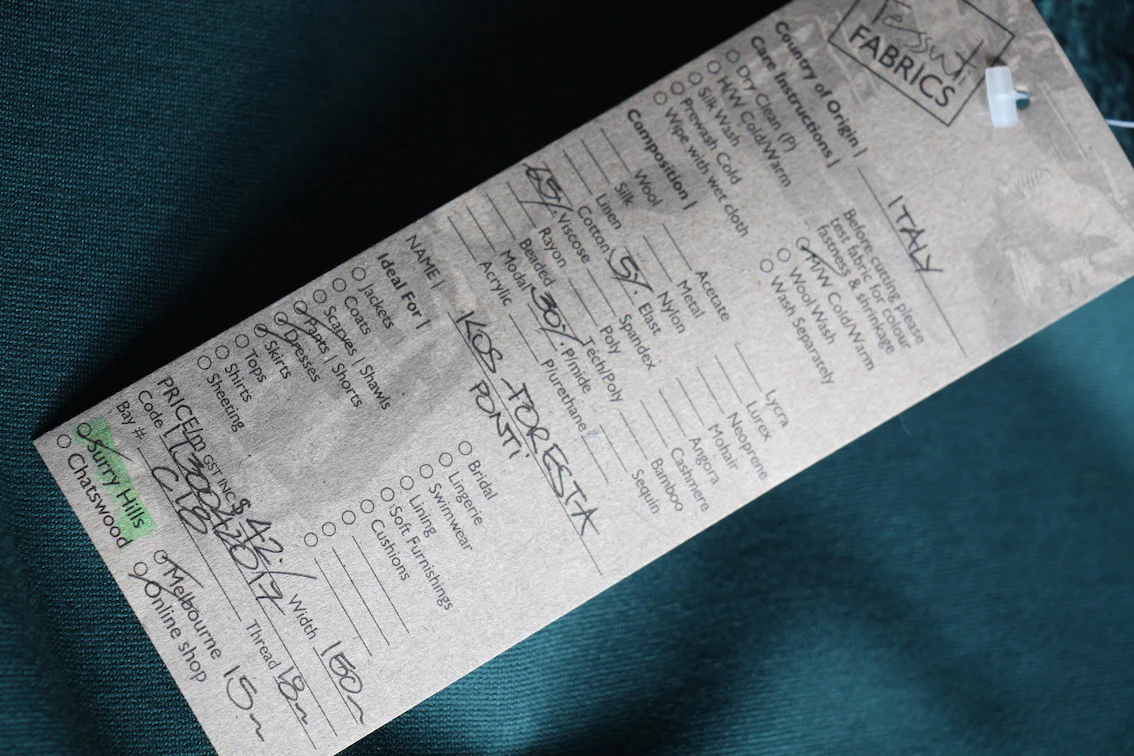 Tessuti
FABRICS
Country of Origin | ITALY
Care Instructions |
Before cutting please
test fabric for colour
fastness & shrinkage
Dry Clean (P)
H/W Cold/Warm
Silk Wash
Prewash Cold
Wipe with wet cloth
H/W Cold/Warm
Wool Wash
Wash Separately
Composition |
Wool
Silk
Linen
Cotton
65% Viscose
Rayon
Beaded
Modal
Acrylic
Acetate
Metal
Nylon
5% Elast
Spandex
Poly
Tech/Poly
30% P/mide
P/urethane
Lycra
Lurex
Neoprene
Mohair
Angora
Cashmere
Bamboo
Sequin
NAME | KOS - FORESTA
PONTI
Ideal For |
Jackets
Coats
Scarves | Shawls
Pants | Shorts
Dresses
Skirts
Tops
Shirts
Sheeting
Bridal
Lingerie
Swimwear
Lining
Soft Furnishings
Cushions
PRICE/m GST INC $ 42.
Width 150
Code
Thread
Bay #
Surry Hills
Chatswood
Melbourne 15m
Online shop